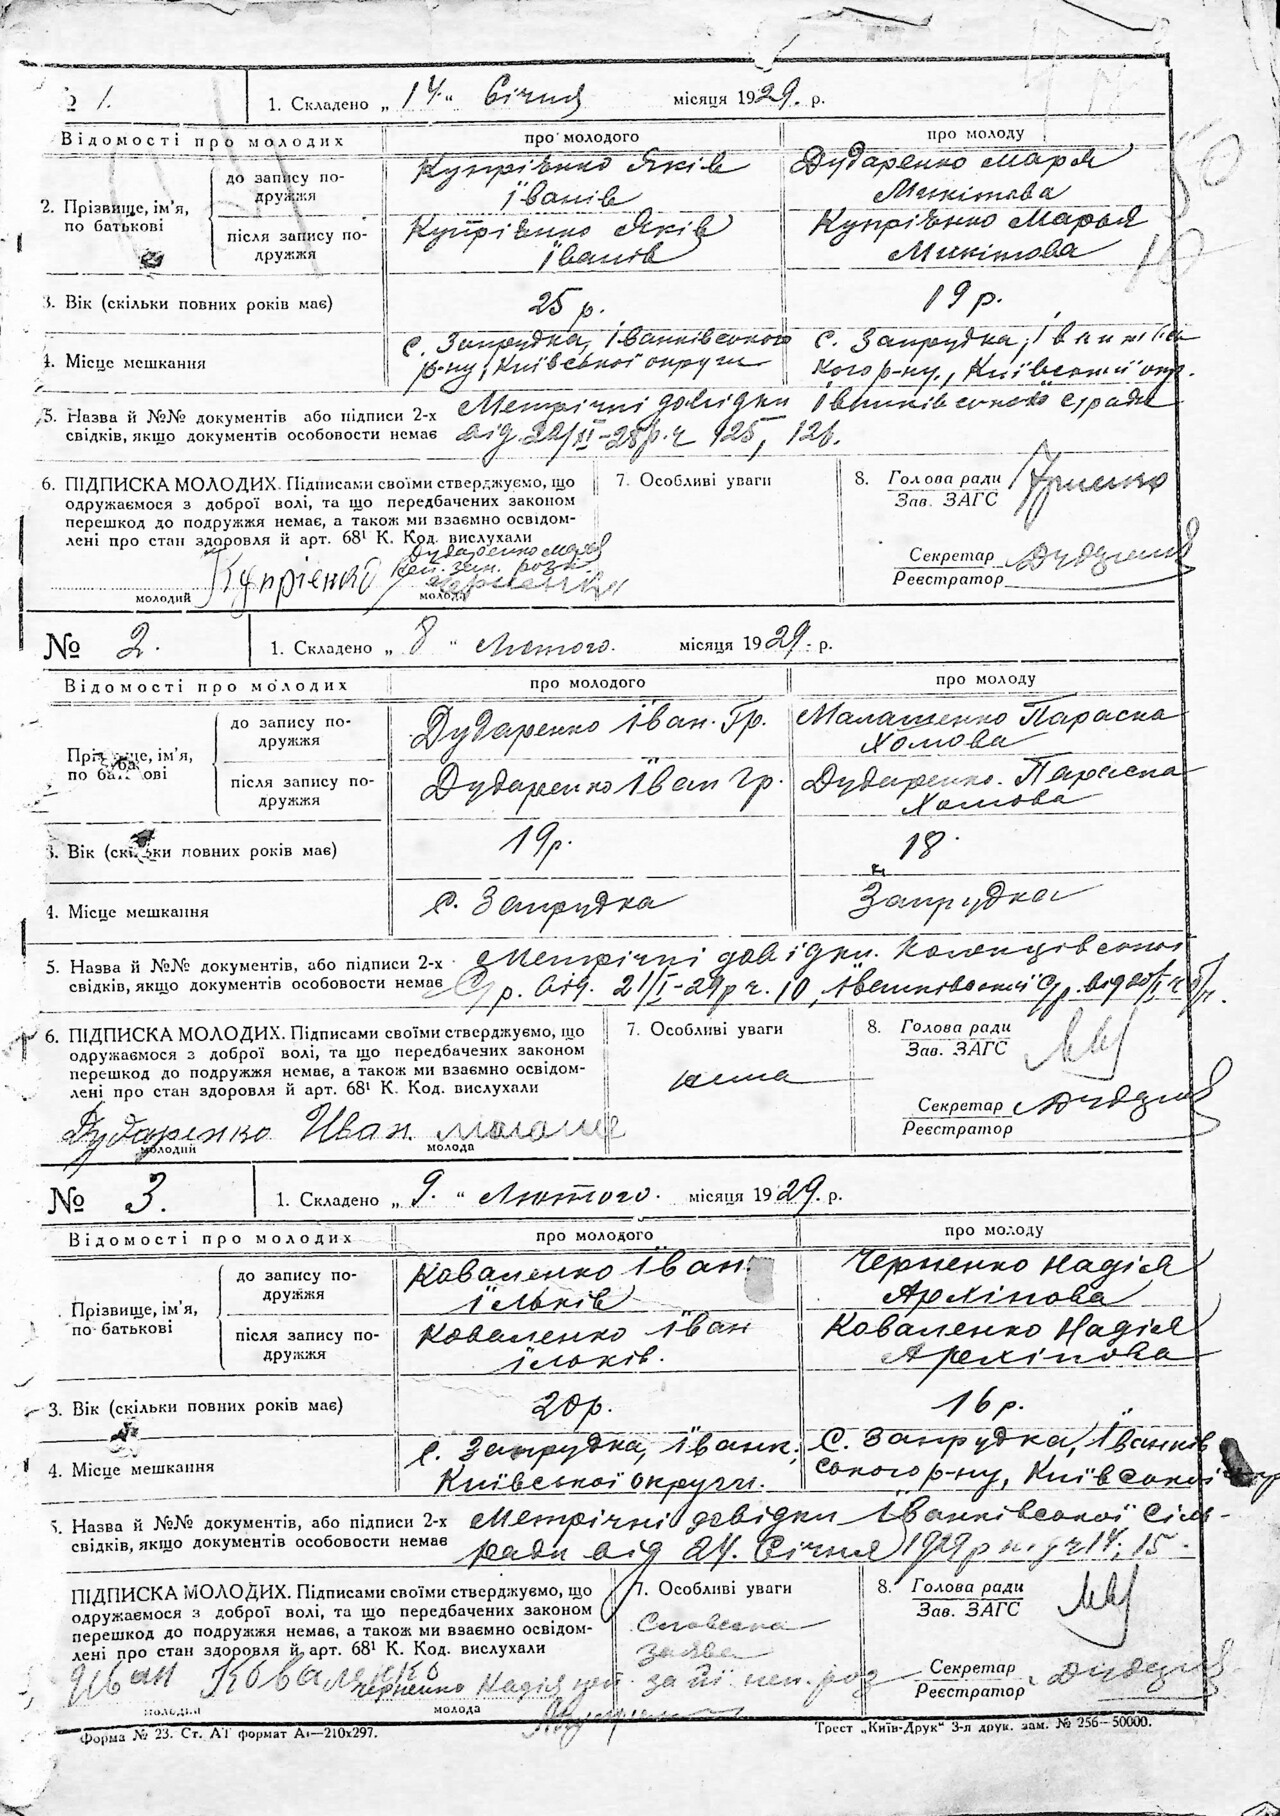 № 1.
1. Складено „ 14 “ Січня місяця 1929. р.
Відомості про молодих
про молодого
про молоду
2. Прізвище, ім'я, по батькові
до запису подружжя
Купрієнко Яків
Іванів
Дударенко Марія
Микітова
після запису подружжя
Купрієнко Яків
Іванів
Купрієнко Марья
Микитова
3. Вік (скільки повних років має)
25 р.
19 р.
4. Місце мешкання
с. Запрудка, Іванківського
р-ну, Київської округи
с. Запрудка, Іванківсь
кого р-ну, Київської окр.
5. Назва й №№ документів або підписи 2-х
свідків, якщо документів особовости немає
Метрічні довідки Іванківської с/ради
від 22/XI-28 р. ч 125, 126.
6. ПІДПИСКА МОЛОДИХ. Підписами своїми стверджуємо, що
одружаємося з доброї волі, та що передбачених законом
перешкод до подружжя немає, а також ми взаємно освідом-
лені про стан здоровля й арт. 68¹ К. Код. вислухали
Купріенко
Дударенко Марія
молодий
молода
7. Особливі уваги
8. Голова ради
Зав. ЗАГС
Секретар
Реєстратор
№ 2.
1. Складено „ 8 “ Лютого. місяця 1929. р.
Відомості про молодих
про молодого
про молоду
Прізвище, ім'я,
по батькові
до запису подружжя
Дударенко Іван. Гр.
Малашенко Параска
Хомова
після запису подружжя
Дударенко Іван Гр.
Дударенко. Параска
Хомова
3. Вік (скільки повних років має)
19 р.
18.
4. Місце мешкання
с. Запрудка
Запрудка
5. Назва й №№ документів, або підписи 2-х
свідків, якщо документів особовости немає
Метрічні довідки. Коленцівської
С/р. від. 21/I-29 р ч. 10, Іванківської С/р. від
6. ПІДПИСКА МОЛОДИХ. Підписами своїми стверджуємо, що
одружаємося з доброї волі, та що передбачених законом
перешкод до подружжя немає, а також ми взаємно освідом-
лені про стан здоровля й арт. 68¹ К. Код. вислухали
Дударенко Иван.
молодий
молода
7. Особливі уваги
нема
8. Голова ради
Зав. ЗАГС
Секретар
Реєстратор
№ 3.
1. Складено „ 9. “ Лютого. місяця 1929. р.
Відомості про молодих
про молодого
про молоду
Прізвище, ім'я,
по батькові
до запису подружжя
Коваленко Іван
Ільків
Черненко Надія
Архіпова
після запису подружжя
Коваленко Іван
Ільків.
Коваленко Надія
Архіпова
3. Вік (скільки повних років має)
20 р.
16 р.
4. Місце мешкання
с. Запрудка, Іванк.
Київської округи.
с. Запрудка, Іванків
ського р-ну, Київської
5. Назва й №№ документів, або підписи 2-х
свідків, якщо документів особовости немає
Метрічні довідки Іванківської Сіль-
ради від 24. Січня 1929 р 14, 15.
ПІДПИСКА МОЛОДИХ. Підписами своїми стверджуємо, що
одружаємося з доброї волі, та що передбачених законом
перешкод до подружжя немає, а також ми взаємно освідом-
лені про стан здоровля й арт. 68¹ К. Код. вислухали
Иван Коваленко
Черненко Надія
молодий
молода
7. Особливі уваги
Словесна
Заява
8. Голова ради
Зав. ЗАГС
Секретар
Реєстратор
Форма № 23. Ст. А1 формат А4—210х297.
Трест „Київ-Друк“ 3-я друк. зам. № 256—50000.